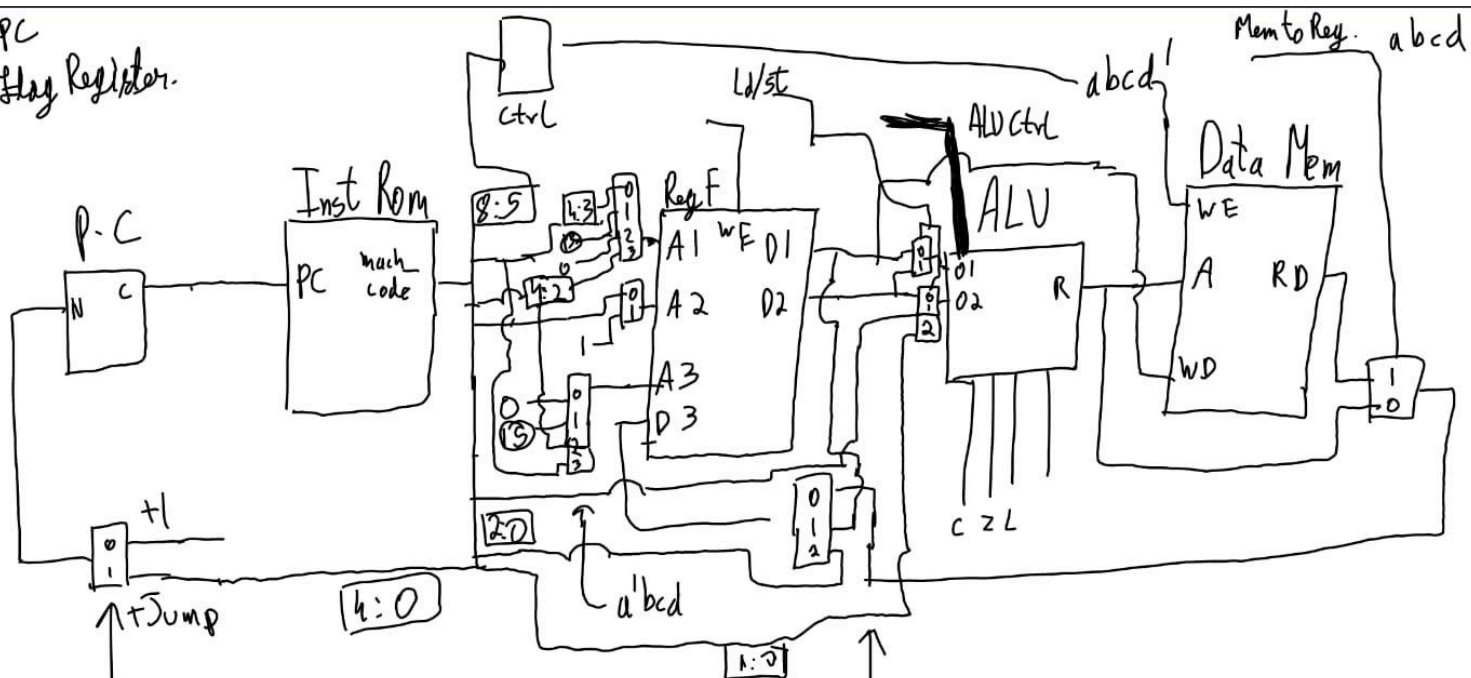 PC
Flag Register.
Ctrl
Ld/st
abcd'
Mem to Reg. abcd
ALU Ctrl
P.C
N
C
Inst Rom
PC
mach
code
8:5
4:3
0
1
2
3
15
0
4:2
0
1
1
Reg F
WE
A1
A2
A3
D3
D1
D2
0
15
0
1
2
3
0
1
0
1
2
ALU
01
02
R
C Z L
Data Mem
WE
A
RD
WD
1
0
+1
0
1
+Jump
4:0
2:0
a'bcd
0
1
2